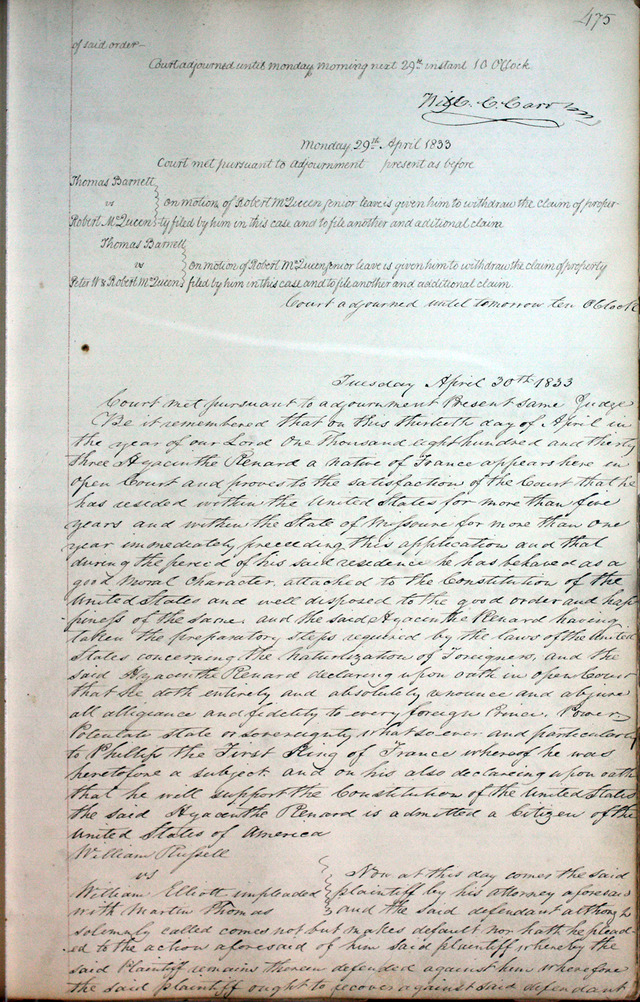 475
of said order—
Court adjourned until monday morning next 29th instant 10 OClock
Will. C. Carr
Monday 29th April 1833
Court met pursuant to adjournment present as before
Thomas Barnett
vs
on motion of Robert McQueen senior leave is given him to withdraw the claim of proper-
Robert McQueen
ty filed by him in this case and to file another and aditional claim
Thomas Barnett
vs
on motion of Robert McQueen senior leave is given him to withdraw the claim of property
Peter W & Robert McQueen
filed by him in this case and to file another and additional claim
Court adjourned until tomorrow ten OClock
Tuesday April 30th 1833
Court met pursuant to adjournment Present same Judge
Be it remembered that on this thirtieth day of April in
the year of our Lord One Thousand eight hundred and thirty
three Hyacinthe Renard a native of France appears here in
open Court and proves to the satisfaction of the Court that he
has resided within the United States for more than five
years and within the State of Missouri for more than one
year immediately preceeding this application and that
during the period of his said residence he has behaved as a
good moral character, attached to the Constitution of the
United States and well disposed to the good order and hap
piness of the same, and the said Hyacinthe Renard having
taken the preparatory steps required by the laws of the United
States concerning the naturlization of Foreigners, and the
said Hyacinthe Renard declaring upon oath in open Court
that he doth entirely and absolutely renounce and abjure
all allegiance and fidelity to every foreign Prince, Power,
Potentate State or Sovereignty whatsoever and particularly
to Phillip the First King of France whereof he was
heretofore a subject and on his also declaring upon oath
that he will support the Constitution of the United States
the said Hyacinthe Renard is admitted a Citizen of the
United States of America
William Russell
vs
Now at this day comes the said
William Elliott impleaded
plaintiff by his attorney aforesaid
with Martin Thomas
and the said defendant although
solemnly called comes not but makes default nor hath he plead-
ed to the action aforesaid of him said plaintiff whereby the
said Plaintiff remains therein defended against him wherefore
the said plaintiff ought to recover against said defendant